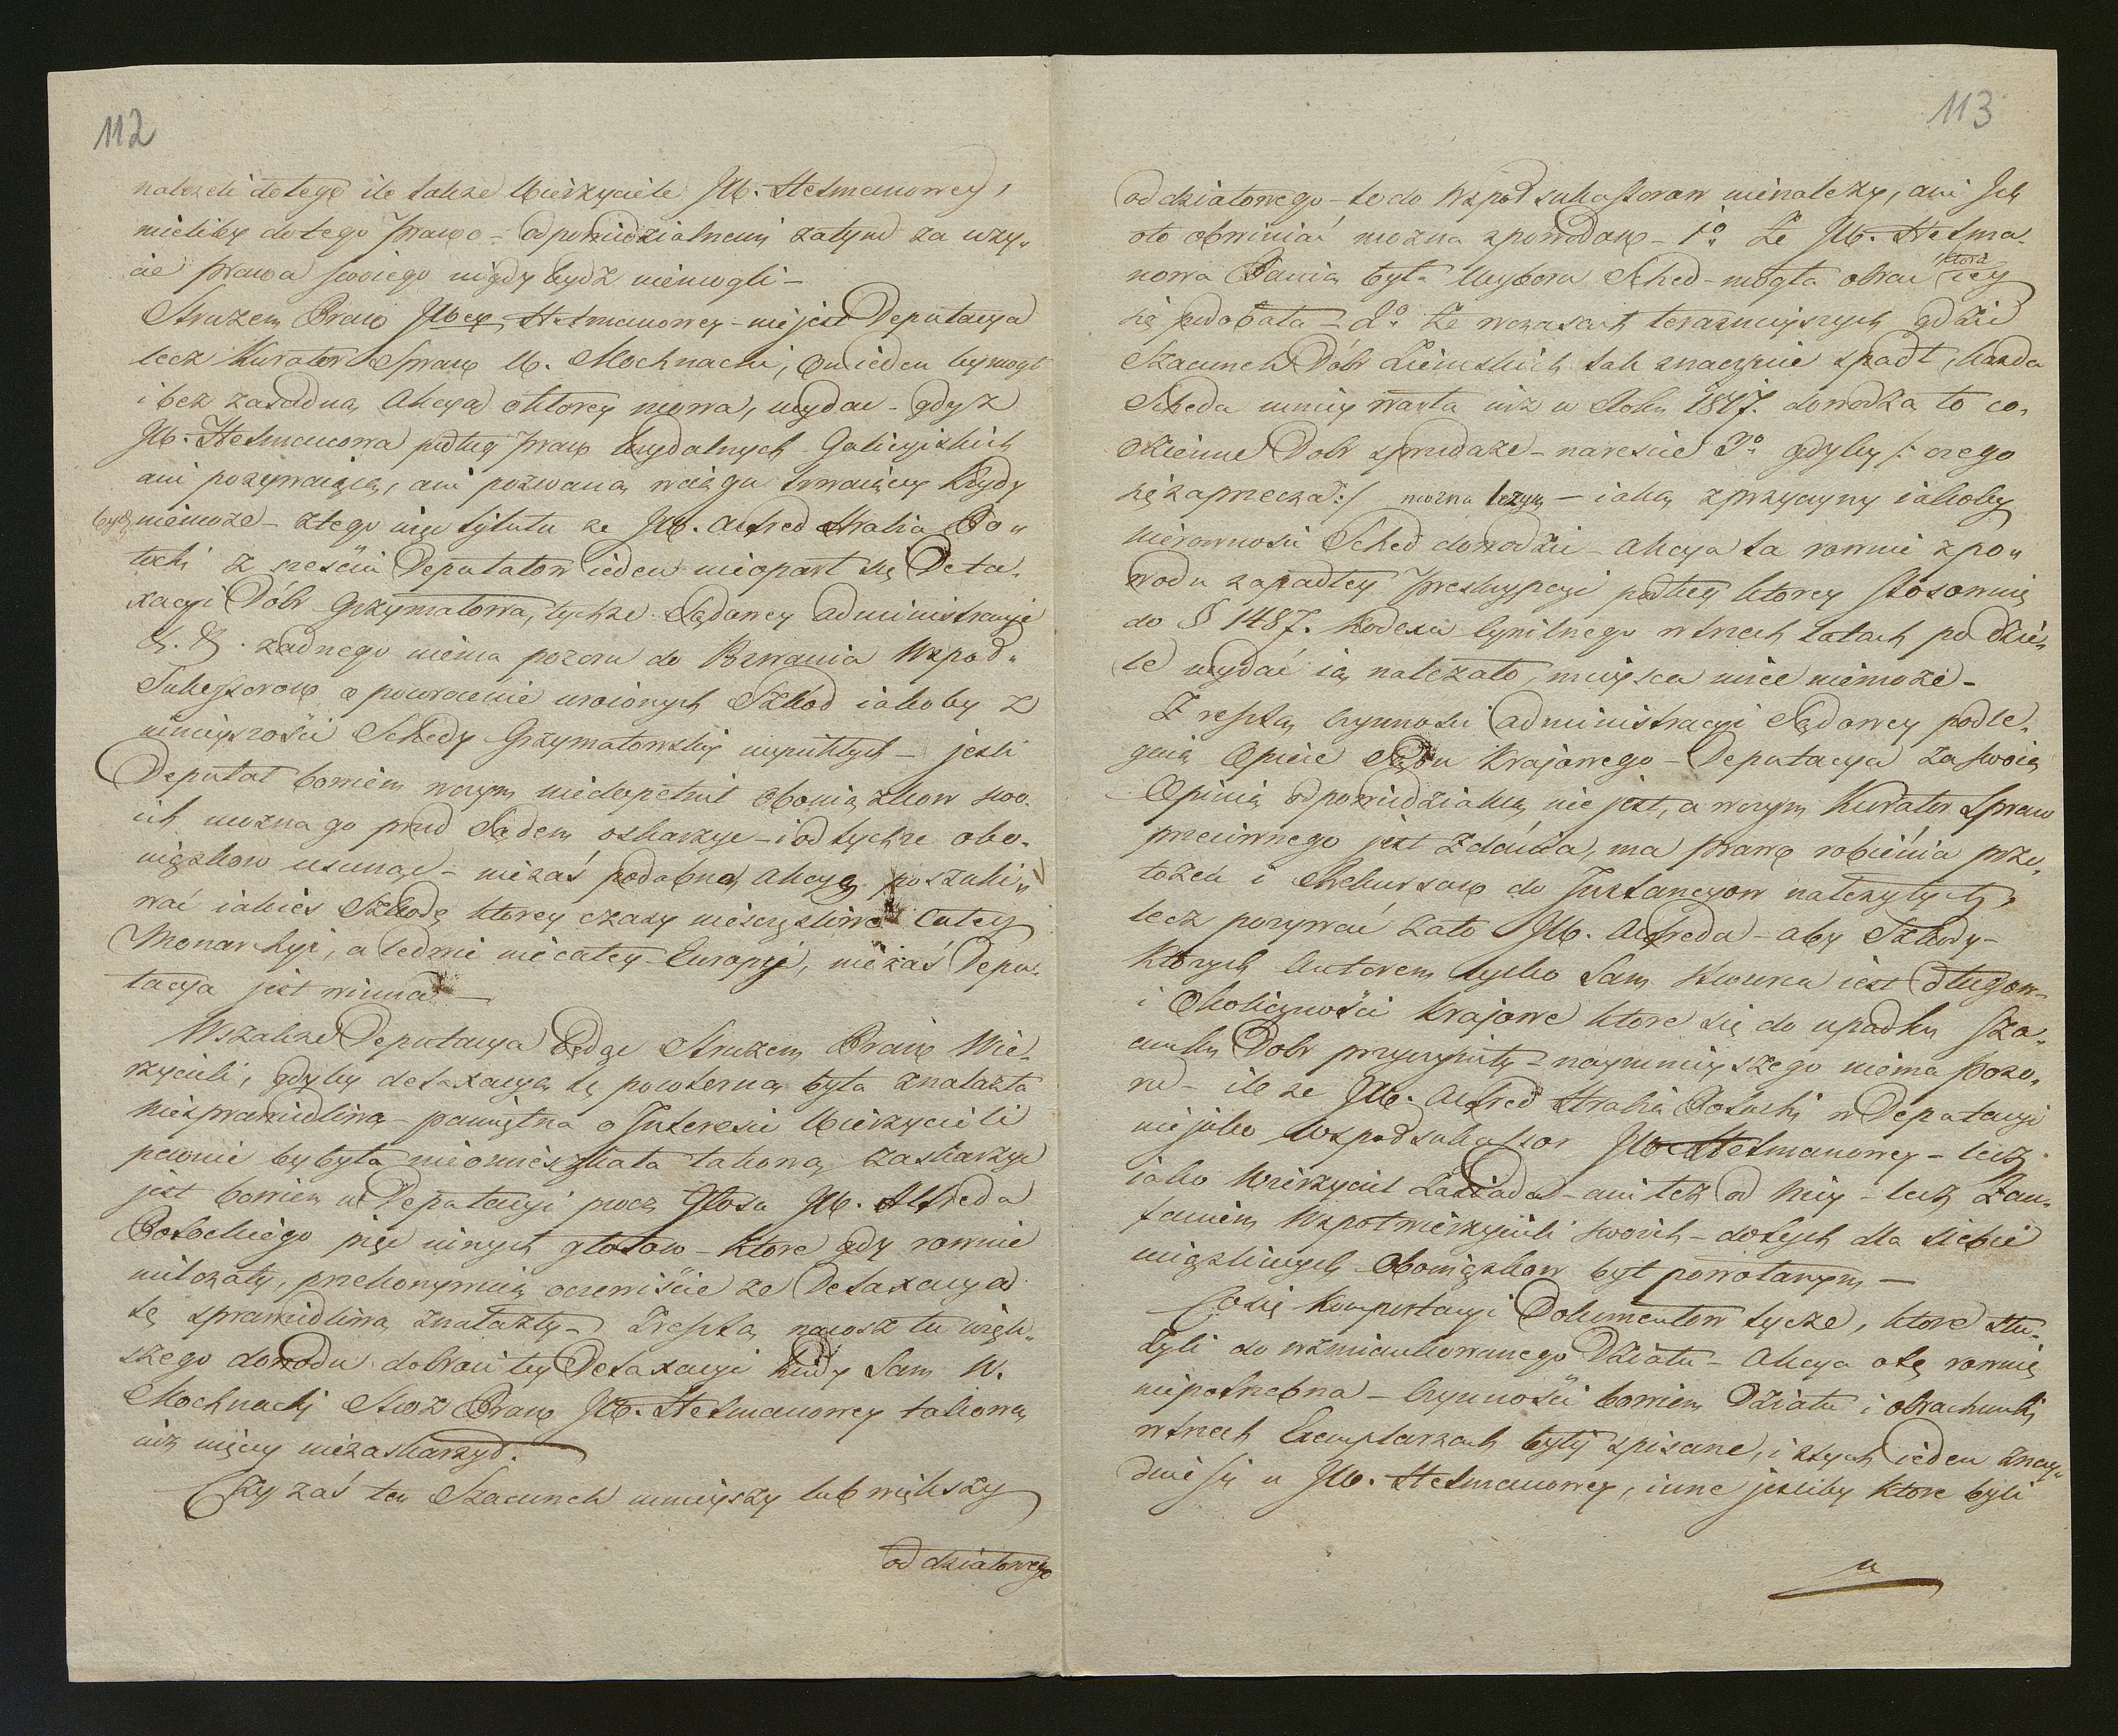 112
należeli do tego ile także Wierzyciele JW. Hetmanowey,
mieliby do tego prawo – odpowiedzialnemi zatym za uży„
cie prawa swoiego nigdy bydź niemogli –
Stróżem Praw JWey Hetmanowey – nie jest Deputacya
lecz Kurator Spraw W. Mochnacki, on ieden by mogł
i bez zasadną Akcyą o ktorey mowa, wydać – gdyż
JW. Hetmanowa podług praw krydalnych Galicyiskich
ani pozywaiącą, ani pozwaną w ciągu trwaiący Krydy
bydź niemoże – z tego więc tytułu że JW. Alfred Hrabia Po„
tocki z sześciu Deputatow ieden nieoparł się Deta„
xacyi Dóbr Grzymałowa, tychże Sądowey Administracyi
&. &. żadnego niema pozoru do Pozwania Wspoł„
Sukcessorow o powrocenie uroionych Szkod iakoby z
mnieyszości Schedy Grzymałowskiey wynikłych – jeśli
Deputat bowiem w czym niedopełnił obowiązkow swo„
ich można go przed Sądem oskarżyć – i od tychże obo„
wiązkow usunąć – nie zaś podobną Akcyą poszuki„
wać iakies Szkodę ktorey czasy nieszczęśliwe całey
Monarchyi, a ledwie nie całey Europy, nie zaś Depu„
tacya jest winna –
Wszakże Deputacya będąc Strużem Praw Wie„
rzycieli, gdyby detaxacyą tę powtorną była znalazła
niesprawiedliwą – pamiętna o Interesie Wierzycieli
pewnie by była nieomieszkała takową zaskarżyć
jest bowiem w Deputacyi procz Głosu JW. Alfreda
Potockiego pięć innych głosow – ktore gdy rownie
milczały, przekonywaią oczewiście że Detaxacyą
tę sprawiedliwą znalazły – Zresztą na cosz tu więk„
szego dowodu dobroci tey Detaxacyi kiedy Sam W.
Mochnacki Stroz Praw JW. Hetmanowey takową
niż więcey niezaskarżył.
Czy zaś ten Szacunek mnieyszy lub większy
od działowego
113
od działowego – to do Wspoł sukcessorow nienależy, ani Ich
oto obwiniać można z powodow – 1o Że JW. Hetma„
nowa Panią była Wyboru Sched – mogła obrać ktora iey
się podobała – 2o Że w czasach teraźnieyszych gdzie
Szacunek Dóbr Ziemskich tak znacznie spadł, każda
Scheda mniey warta niż w Roku 1817. dowodzą to co„
dzienne Dobr sprzedaże – nareście 3o gdyby /: czego
się zaprzecza :/ można było – iaką z przyczyny iakoby
nierowności Sched dowodzić – Akcya ta rownie z po„
wodu zapadłey preskrypcyi podług ktorey stosownie
do § 1487. Kodexu Cywilnego w trzech latach po dzie„
le wydać ią należało, mieysca mieć niemoże –
Zresztą Czynności Administracyi Sądowey podle„
gaią Opiece Sądu Krajowego – Deputacya za swoią
Opinią odpowiedzialną nie jest, a w czym Kurator Spraw
przeciwnego jest zdania, ma prawo robienia prze„
łożeń i Rekursow do Instancyow należytych,
lecz pozywać za to JW. Alfreda – aby Szkody –
ktorych Autorem tylko Sam Kurator iest długow –
i Okoliczności Krajowe ktore się do upadku Sza„
cunku Dobr przyczyniły – naymnieyszego niema pozo„
ru – ile że JW. Alfred Hrabia Potocki w Deputacyi
nie jako Wspoł sukcessor JW. Hetmanowey – lecz
iako Wierzyciel zasiada – ani też od Niey – lecz Zau„
faniem Wspołwierzycieli swoich – do tych dla siebie
uciążliwych Obowiązkow był powołanym –
Co się Komportacyi Dokumentow tycze, ktore słu„
żyli do wzmiankowanego Działu – Akcya o tę rownie
niepotrzebna – Czynności bowiem Działu i obrachunki
w trzech Exemplarzach były spisane, i z tych ieden znay„
duie się u JW. Hetmanowey, inne jeśliby ktore byli
u